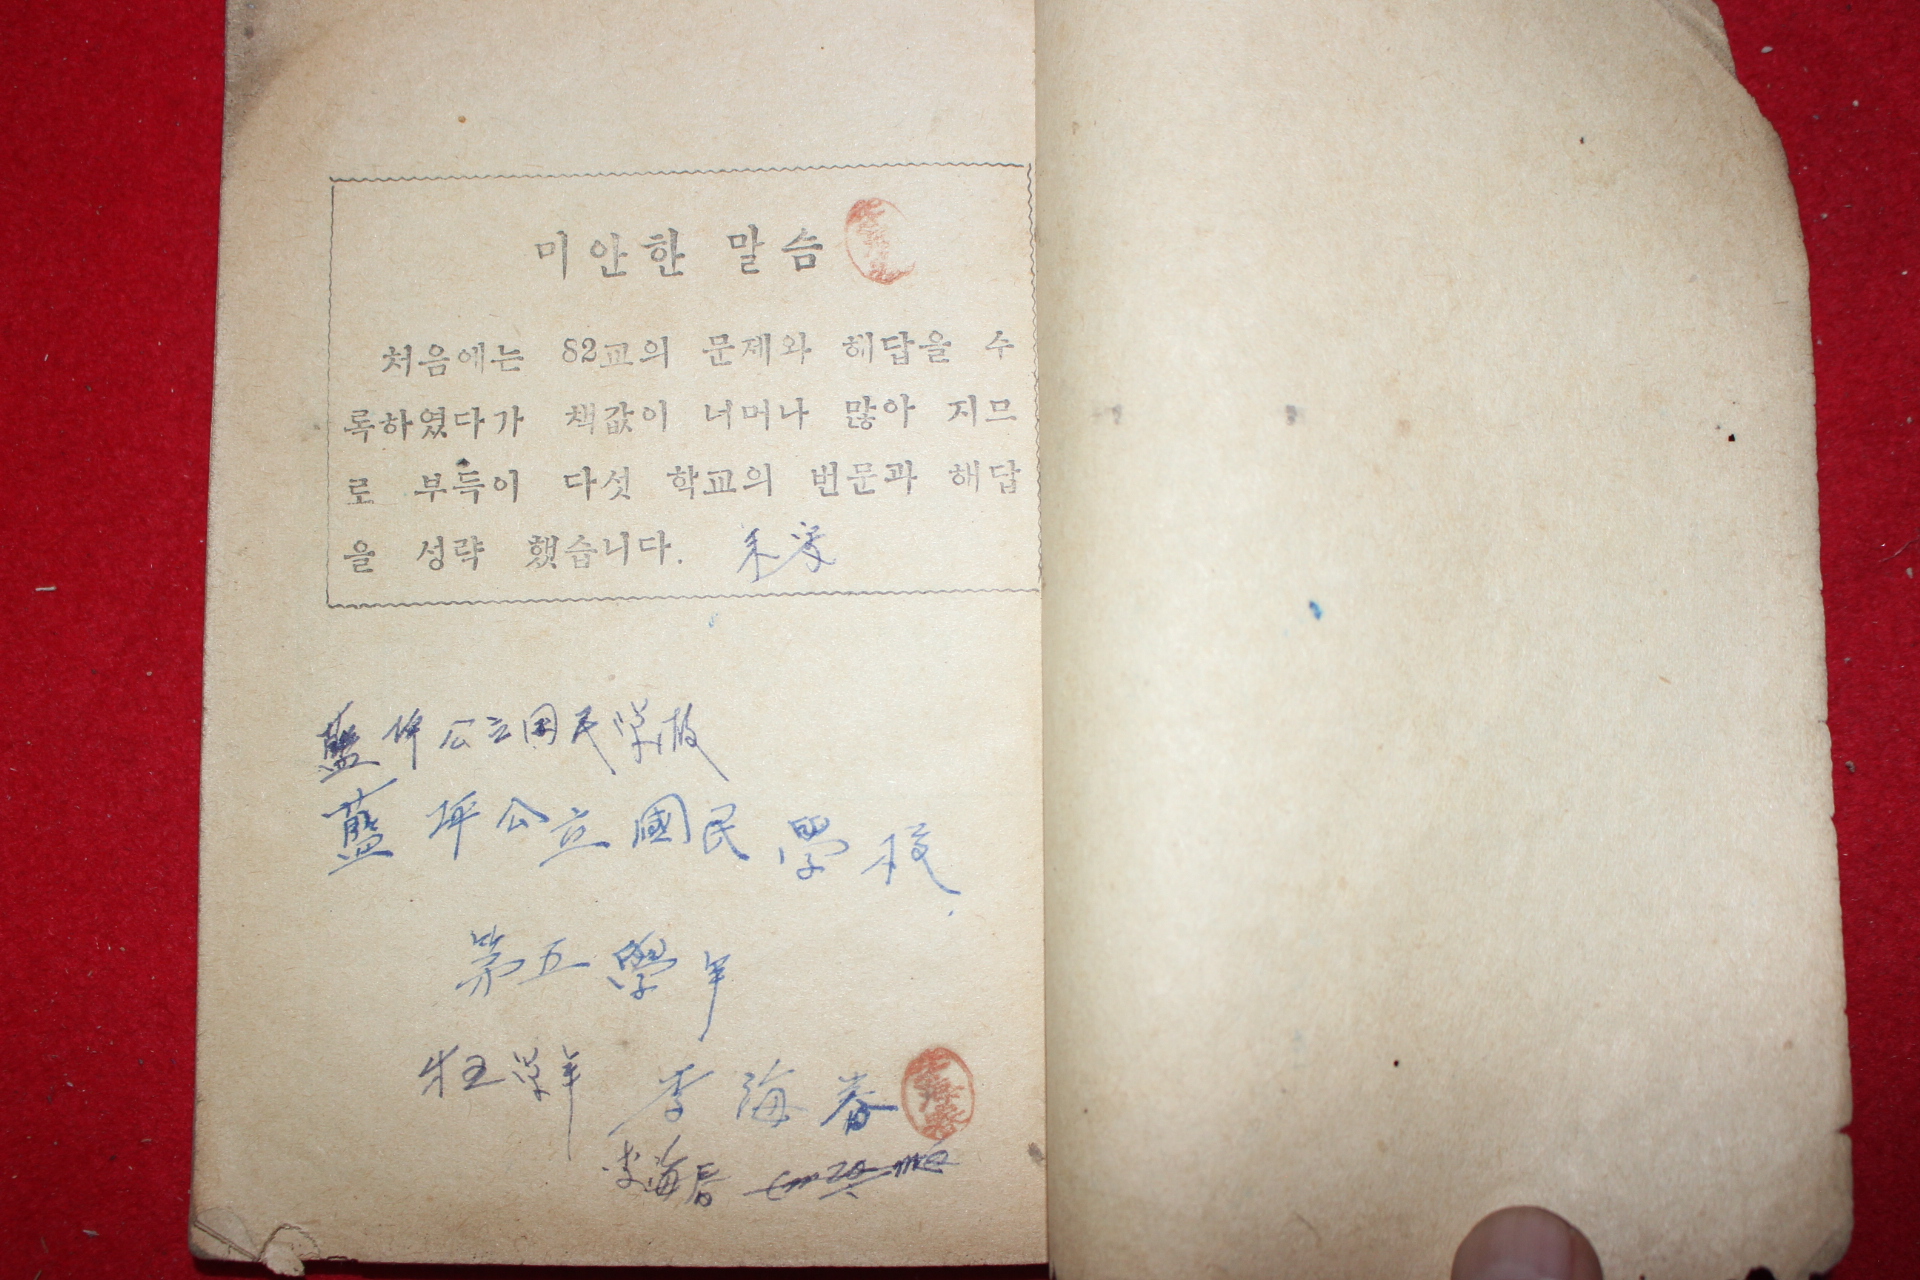 미안한 말슴
처음에는 82교의 문제와 해답을 수
록하였다가 책값이 너머나 많아 지므
로 부득이 다섯 학교의 번문과 해답
을 성략 했습니다.
藍坪公立国民学校
藍坪公立國民學校
第五學年
学年 李海春
李海春